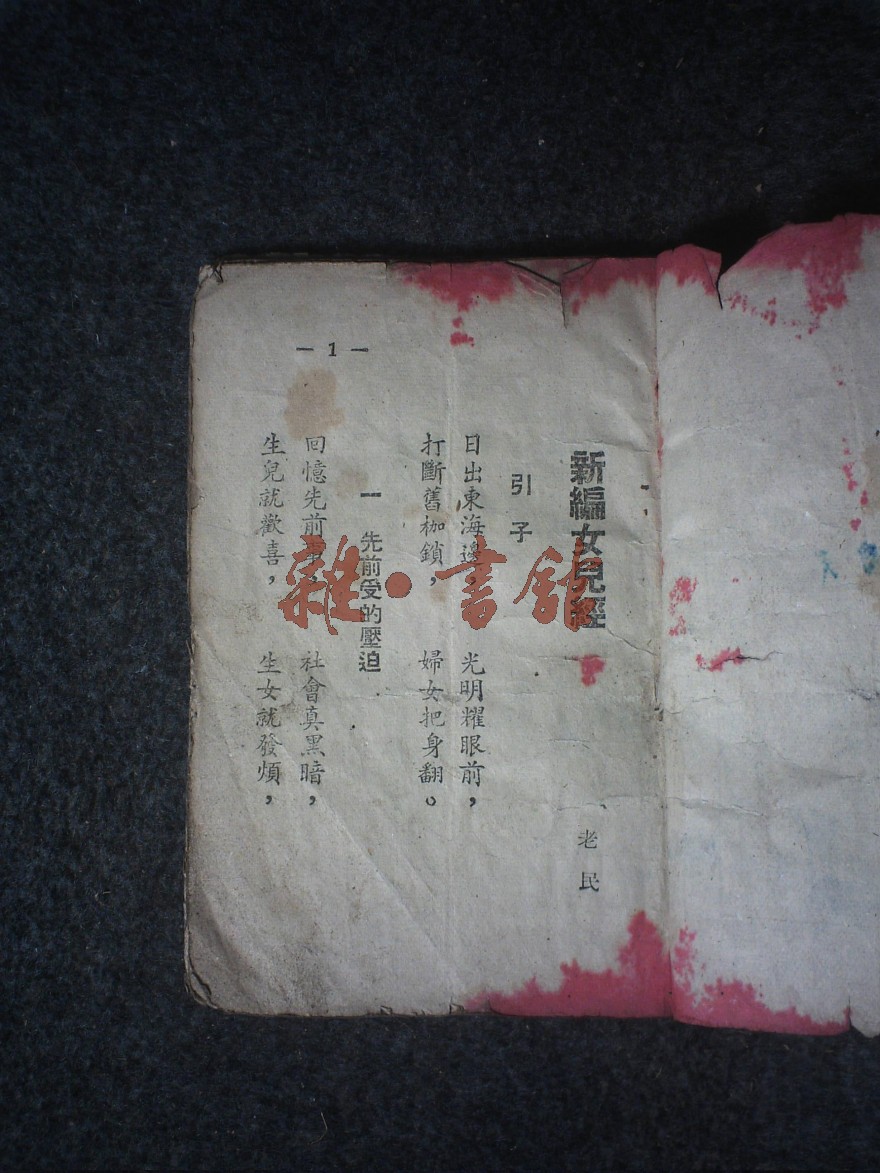 新編女兒經
老民
引子
日出東海邊，光明耀眼前，
打斷舊枷鎖，婦女把身翻。
一 先前受的壓迫
回憶先前，社會真黑暗，
生兒就歡喜，生女就發煩，
— 1 —
雜·書館